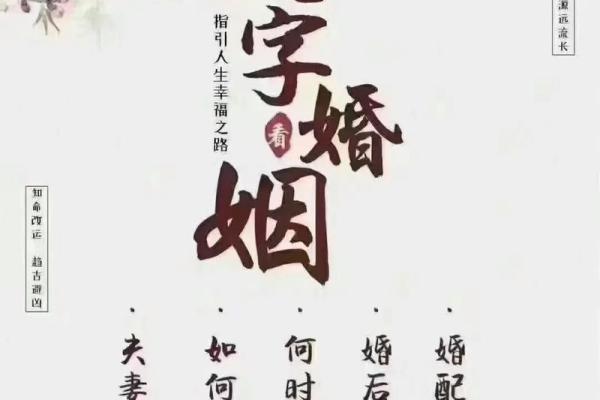 源远流长
字
看
婚
姻
指引人生幸福之路
知命改运 趋吉避凶
·婚配
·婚后
·何时
·如何
·夫妻